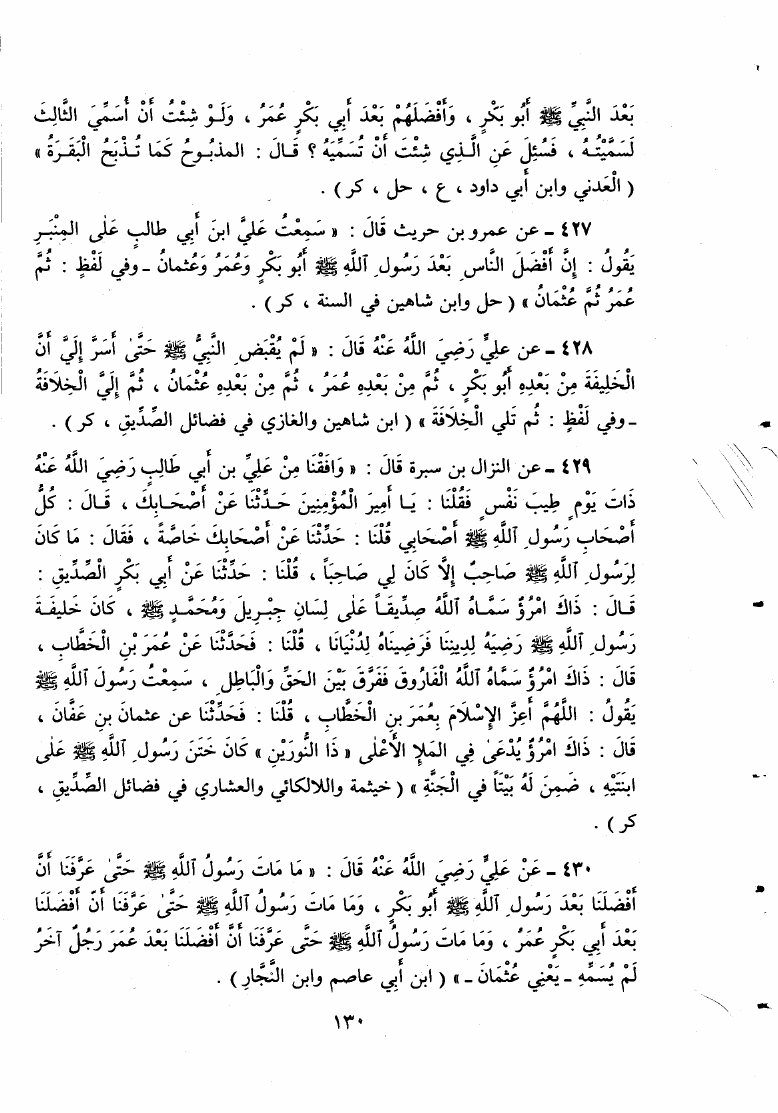 بَعْدَ النَّبِيِّ ﷺ أَبُو بَكْرٍ ، وَأَفْضَلَهُمْ بَعْدَ أَبِي بَكْرٍ عُمَرُ ، وَلَوْ شِئْتُ أَنْ أُسَمِّيَ الثَّالِثَ
لَسَمَّيْتُهُ ، فَسُئِلَ عَنِ الَّذِي شِئْتَ أَنْ تُسَمِّيَهُ ؟ قَالَ : المذبُوحُ كَمَا تُذْبَحُ الْبَقَرَةُ »
( الْعَدني وابن أبي داود ، ع ، حل ، كر ) .
٤٢٧ - عن عمرو بن حريث قَالَ : « سَمِعْتُ عَلِيَّ ابنَ أَبِي طالبٍ عَلَى المِنْبَرِ
يَقُولُ : إِنَّ أَفْضَلَ النَّاسِ بَعْدَ رَسُولِ اللَّهِ ﷺ أَبُو بَكْرٍ وَعُمَرُ وَعُثمانُ - وفي لَفْظٍ : ثُمَّ
عُمَرُ ثُمَّ عُثْمَانُ » ( حل وابن شاهين في السنة ، كر ) .
٤٢٨ - عن عليٍّ رَضِيَ اللَّهُ عَنْهُ قَالَ : « لَمْ يُقْبَضِ النَّبِيُّ ﷺ حَتَّى أَسَرَّ إِلَيَّ أَنَّ
الْخَلِيفَةَ مِنْ بَعْدِهِ أَبُو بَكْرٍ ، ثُمَّ مِنْ بَعْدِهِ عُمَرُ ، ثُمَّ مِنْ بَعْدِهِ عُثْمَانُ ، ثُمَّ إِلَيَّ الْخِلَافَةُ
- وفي لَفْظٍ : ثُم تَلي الْخِلَافَةَ » ( ابن شاهين والغازي في فضائل الصِّدِّيقِ ، كر ) .
٤٢٩ - عن النزال بن سبرة قَالَ : « وَافَقْنَا مِنْ عَلِيِّ بن أَبي طَالِبٍ رَضِيَ اللَّهُ عَنْهُ
ذَاتَ يَوْمٍ طِيبَ نَفْسٍ فَقُلْنَا : يَا أَمِيرَ الْمُؤْمِنِينَ حَدِّثْنَا عَنْ أَصْحَابِكَ ، قَالَ : كُلُّ
أَصْحَابِ رَسُولِ اللَّهِ ﷺ أَصْحَابِي قُلْنَا : حَدِّثْنَا عَنْ أَصْحَابِكَ خَاصَّةً ، فَقَالَ : مَا كَانَ
لِرَسُولِ اللَّهِ ﷺ صَاحِبٌ إِلَّا كَانَ لِي صَاحِباً ، قُلْنَا : حَدِّثْنَا عَنْ أَبِي بَكْرٍ الصِّدِّيقِ :
قَالَ : ذَاكَ امْرُؤٌ سَمَّاهُ اللَّهُ صِدِّيقاً عَلَى لِسَانِ جِبْرِيلَ وَمُحَمَّدٍ ﷺ ، كَانَ خَلِيفَةَ
رَسُولِ اللَّهِ ﷺ رَضِيَهُ لِدِينِنَا فَرَضِينَاهُ لِدُنْيَانَا ، قُلْنَا : فَحَدِّثْنَا عَنْ عُمَرَ بْنِ الْخَطَّابِ ،
قَالَ : ذَاكَ امْرُؤٌ سَمَّاهُ اللَّهُ الْفَارُوقَ فَفَرَّقَ بَيْنَ الحَقِّ وَالْبَاطِلِ ، سَمِعْتُ رَسُولَ اللَّهِ ﷺ
يَقُولُ : اللَّهُمَّ أَعِزَّ الإِسْلَامَ بِعُمَرَ بنِ الْخَطَّابِ ، قُلْنَا : فَحَدِّثْنَا عن عثمانَ بنِ عَفَّانَ ،
قَالَ : ذَاكَ امْرُؤٌ يُدْعَى فِي المَلإِ الأَعْلَى « ذَا النُّورَيْنِ » كَانَ خَتَنَ رَسُولِ اللَّهِ ﷺ عَلَى
ابنَتَيْهِ ، ضَمِنَ لَهُ بَيْتاً في الْجَنَّةِ » ( خيثمة واللالكائي والعشاري في فضائل الصِّدِّيقِ ،
كر ) .
٤٣٠ - عَنْ عَلِيٍّ رَضِيَ اللَّهُ عَنْهُ قَالَ : « مَا مَاتَ رَسُولُ اللَّهِ ﷺ حَتَّى عَرَفْنَا أَنَّ
أَفْضَلَنَا بَعْدَ رَسُولِ اللَّهِ ﷺ أَبُو بَكْرٍ ، وَمَا مَاتَ رَسُولُ اللَّهِ ﷺ حَتَّى عَرَفْنَا أَنَّ أَفْضَلَنَا
بَعْدَ أَبِي بَكْرٍ عُمَرُ ، وَمَا مَاتَ رَسُولُ اللَّهِ ﷺ حَتَّى عَرَفْنَا أَنَّ أَفْضَلَنَا بَعْدَ عُمَرَ رَجُلٌ آخَرُ
لَمْ يُسَمِّهِ - يَعْنِي عُثْمَانَ - » ( ابن أبي عاصم وابن النَّجَّارِ ) .
١٣٠